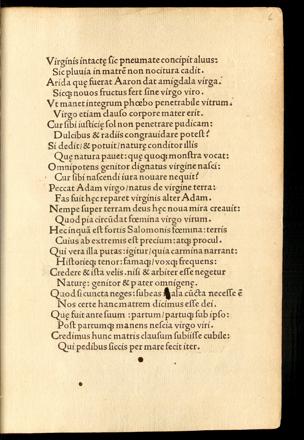 6
Virginis intactę sic pneumate concipit aluus:
Sic pluuia in matrē non nocitura cadit.
Arida quę fuerat Aaron dat amigdala virga.
Sicq; nouos fructus fert sine virgo viro.
Vt manet integrum phœbo penetrabile vitrum.
Virgo etiam clauso corpore mater erit.
Cur sibi iusticię sol non penetrare pudicam:
Dulcibus & radiis congrauidare potest?
Si dedit/& potuit/naturę conditor illis
Quę natura pauet: quę quoq; monstra vocat:
Omnipotens genitor dignatus virgine nasci:
Cur sibi nascendi iura nouare nequit?
Peccat Adam virgo/natus de virgine terra:
Fas fuit hęc reparet virginis alter Adam.
Nempe super terram deus hęc noua mira creauit:
Quod pia circūdat fœmina virgo virum.
Hec inquā est fortis Salomonis fœmina: terris
Cuius ab extremis est precium: atq; procul.
Qui vera illa putas: igitur/quia carmina narrant:
Historieq; tenor: fama q;/vox q; frequens:
Credere & ista velis. nisi & arbiter esse negetur
Naturę: genitor & pater omnigenę.
Quod si cuncta neges: subeas mala cūcta necesse ē
Nos certe hanc matrem dicimus esse dei.
Quę fuit ante suum: partum/partuq; sub ipso:
Post partumq; manens nescia virgo viri.
Credimus hunc matris clausum subiisse cubile:
Qui pedibus siccis per mare fecit iter.